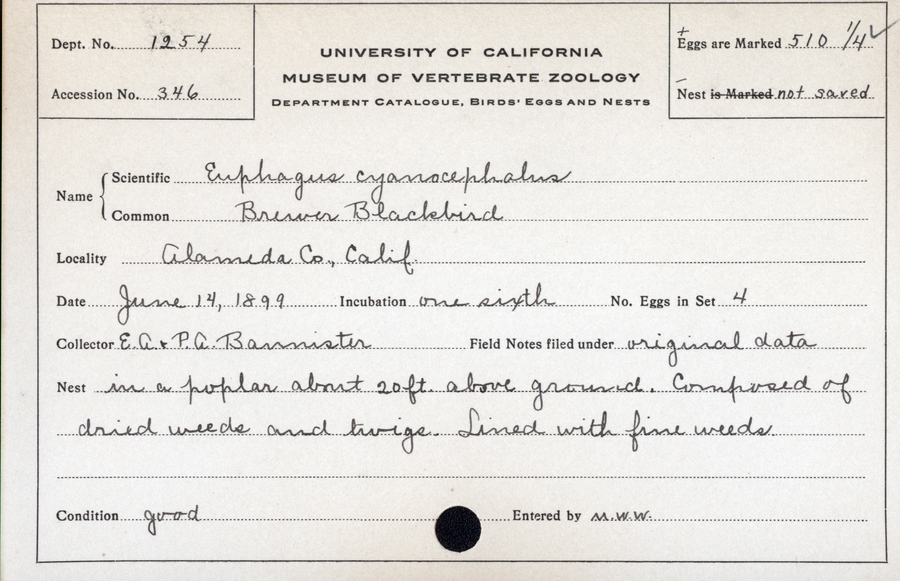 Dept. No. 1254
Accession No. 346
UNIVERSITY OF CALIFORNIA
MUSEUM OF VERTEBRATE ZOOLOGY
DEPARTMENT CATALOGUE, BIRDS' EGGS AND NESTS
+
Eggs are Marked 510 1/4 ✓
–
Nest is Marked not saved
Name { Scientific Euphagus cyanocephalus
Common Brewer Blackbird
Locality Alameda Co., Calif.
Date June 14, 1899 Incubation one sixth No. Eggs in Set 4
Collector E.A. & P.A. Bannister Field Notes filed under original data
Nest in a poplar about 20ft. above ground. Composed of
dried weeds and twigs. Lined with fine weeds.
Condition good Entered by M.W.W.